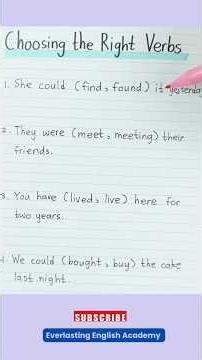 Choosing the Right Verbs
1. She could (find, found) it yesterday
2. They were (meet, meeting) their
friends.
3. You have (lived, live) here for
two years.
4. We could (bought, buy) the cake
last night.
SUBSCRIBE
Everlasting English Academy